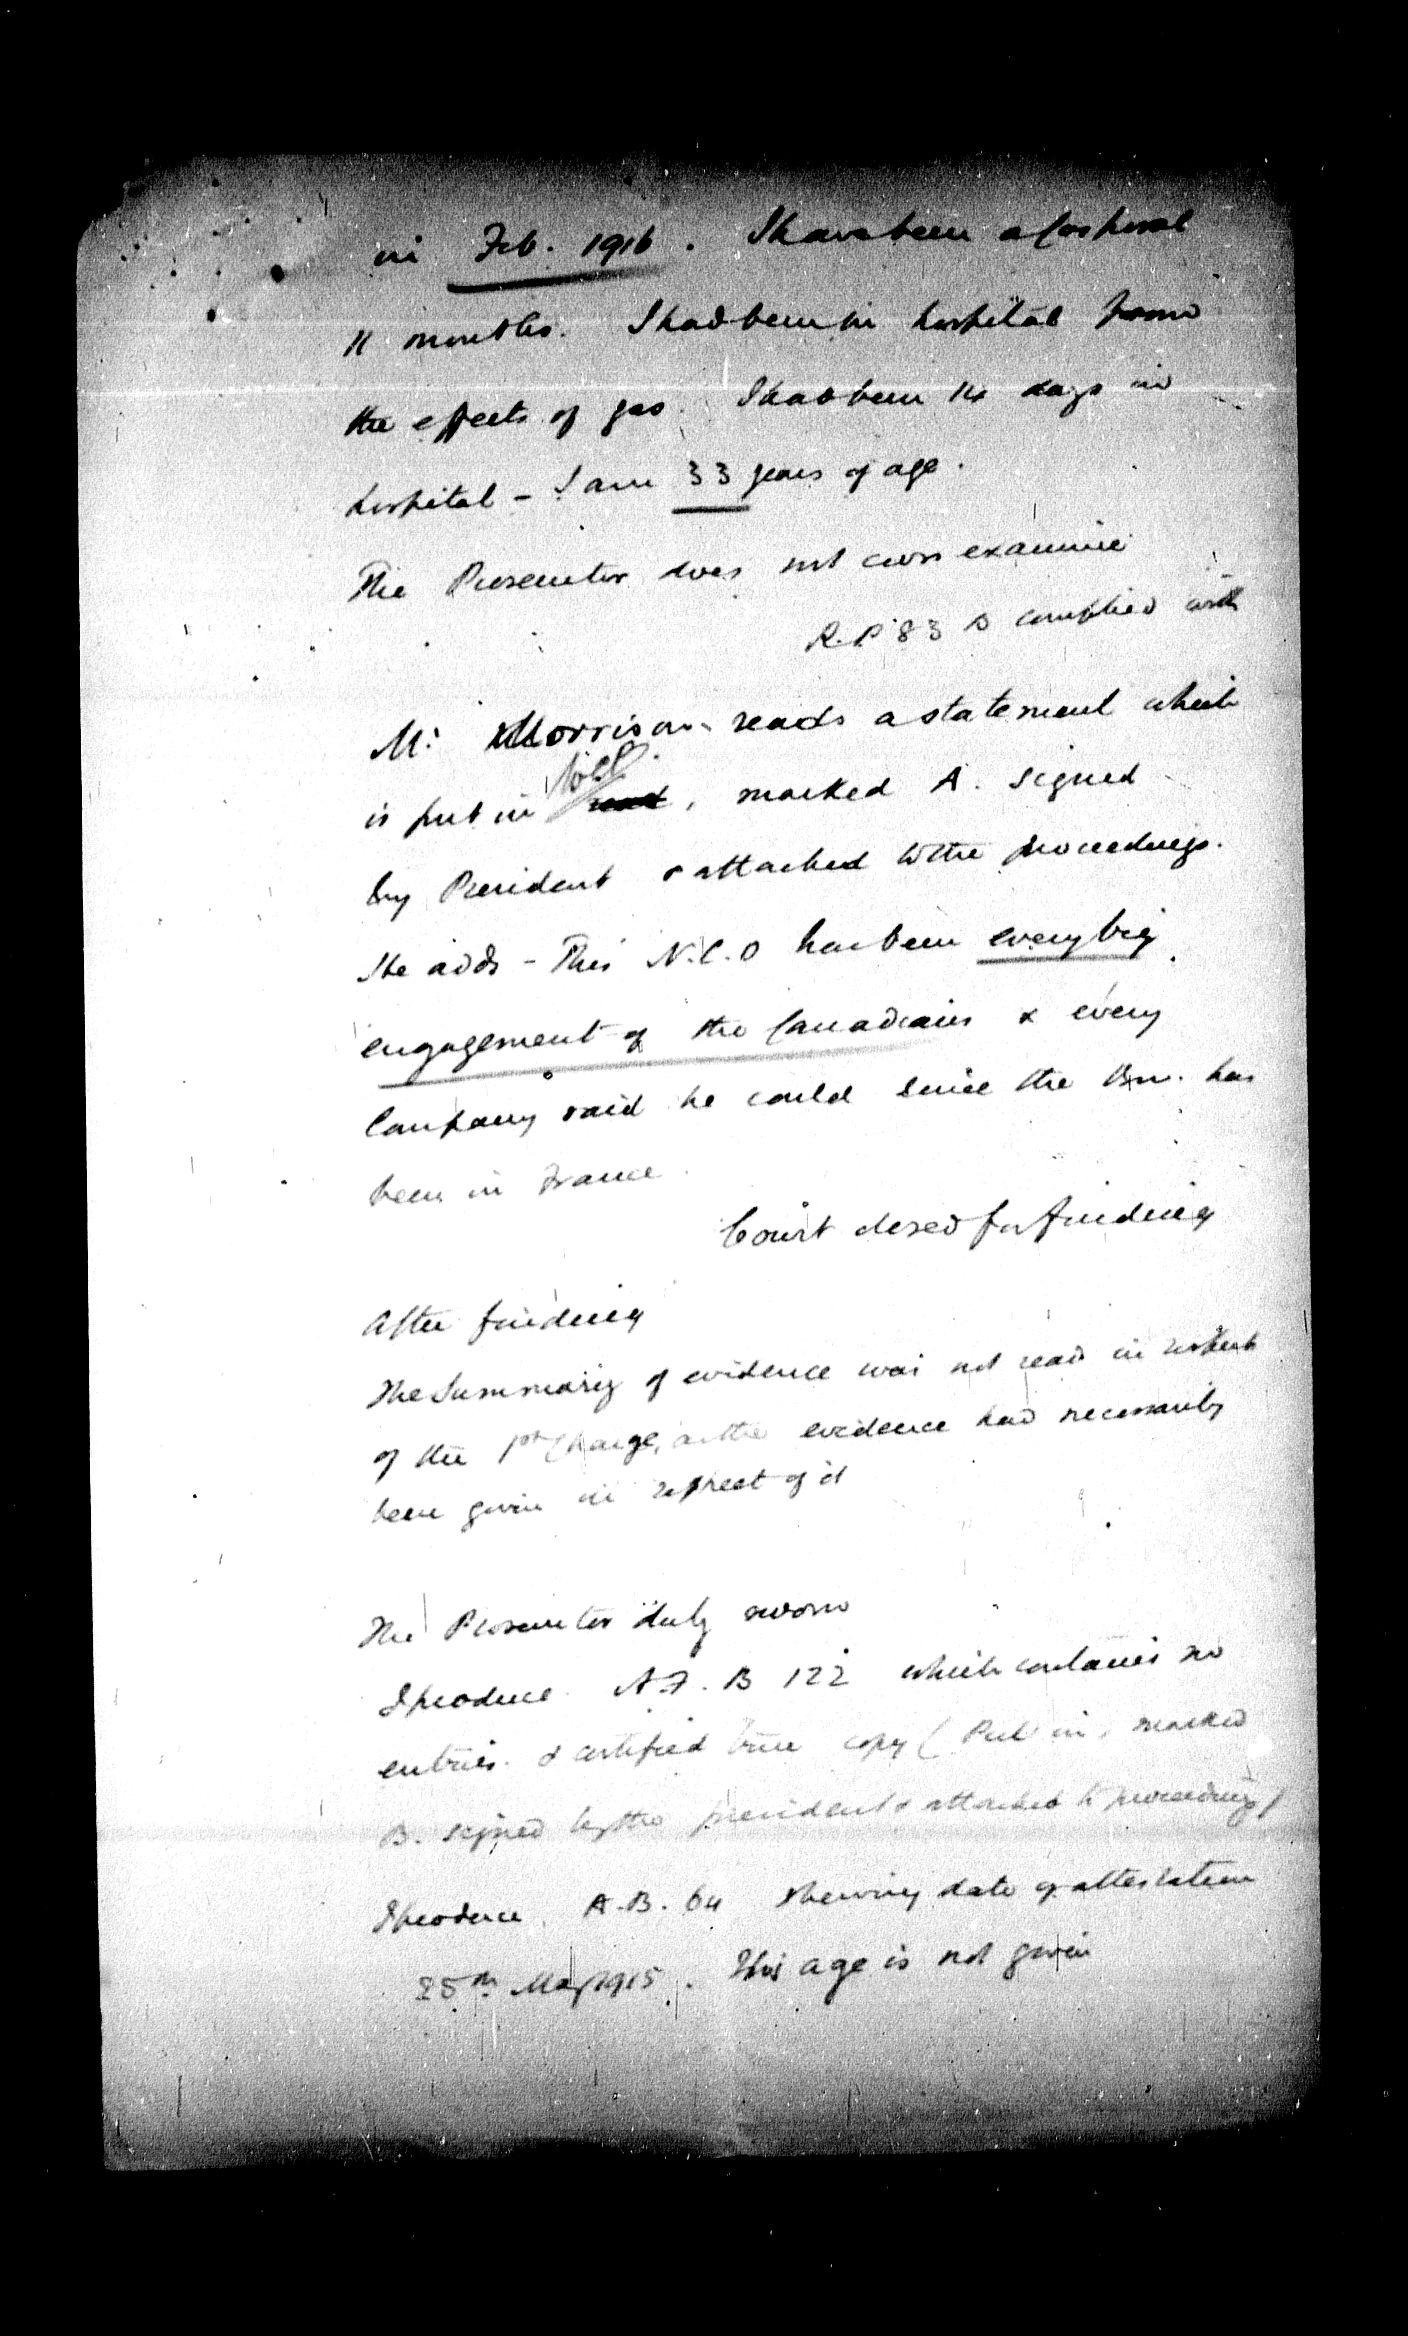 in Feb. 1916. I have been a Corporal
11 months. I had been in hospital from
the effects of gas. I had been 14 days in
hospital - I am 33 years of age.
The Prosecutor does not cross examine
R.P 83 B complied with
Mr Morrison reads a statement which
is put in, marked A. signed
by President & attached to the proceedings.
He adds - This N.C.O has been every big
engagement of the Canadians & every
Company raid he could since the Bn. has
been in France.
Court closed for finding
After finding
The Summary of evidence was not read in respect
of the 1st Charge, as the evidence had necessarily
been given in respect of it
The Prosecutor duly sworn
I produce A.F. B 122 which contains no
entries. & certified true copy (Put in, marked
B. signed by the president & attached to proceedings)
I produce A.B. 64 shewing date of attestation
25th May 1915. His age is not given